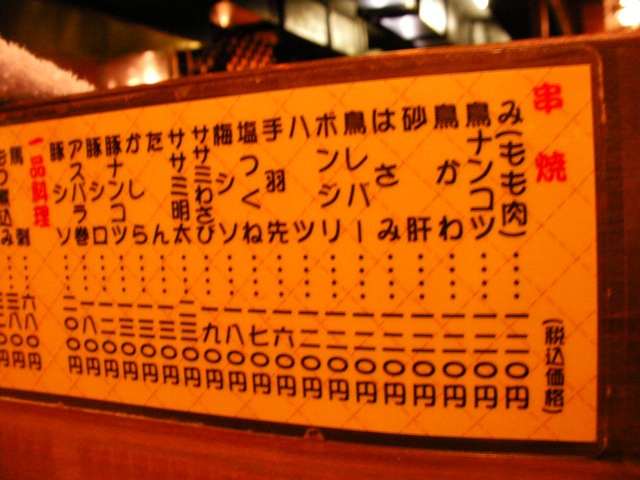 串焼 (税込価格)
み(もも肉)……一二〇円
鳥ナンコツ……一二〇円
鳥かわ……一二〇円
砂肝……一二〇円
はさみ……一二〇円
鳥レバー……一二〇円
ボンジリ……一二〇円
ハツ……一二〇円
手羽先……一六〇円
塩つくね……一七〇円
梅シソ……一八〇円
ササミわさび……一九〇円
ササミ明太……〇円
たん……一三〇円
かしら……一三〇円
豚ナンコツ……一三〇円
豚シロ……一二〇円
アスパラ巻……一八〇円
豚シソ……〇円
一品料理
馬刺……円
もつ煮込み……円